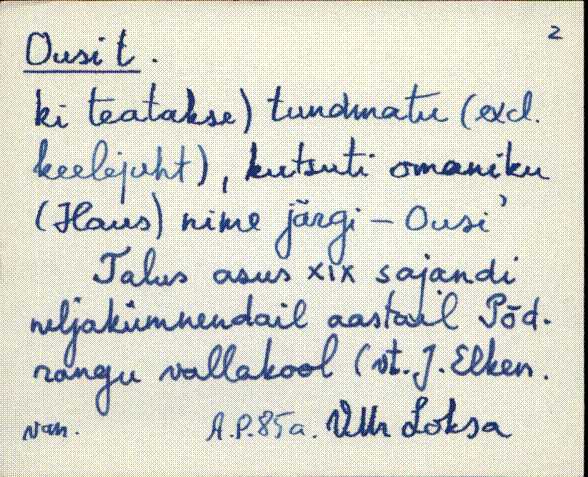 2
Ousi t.
ki teatakse) tundmatu (excl.
keelejuht), kutsuti omaniku
(Haus) nime järgi – Ousi'
Talus asus XIX sajandi
neljakümnendail aastail Põd-
rangu vallakool (vt. J. Elken.
A.P. 85a. VMr Loksa